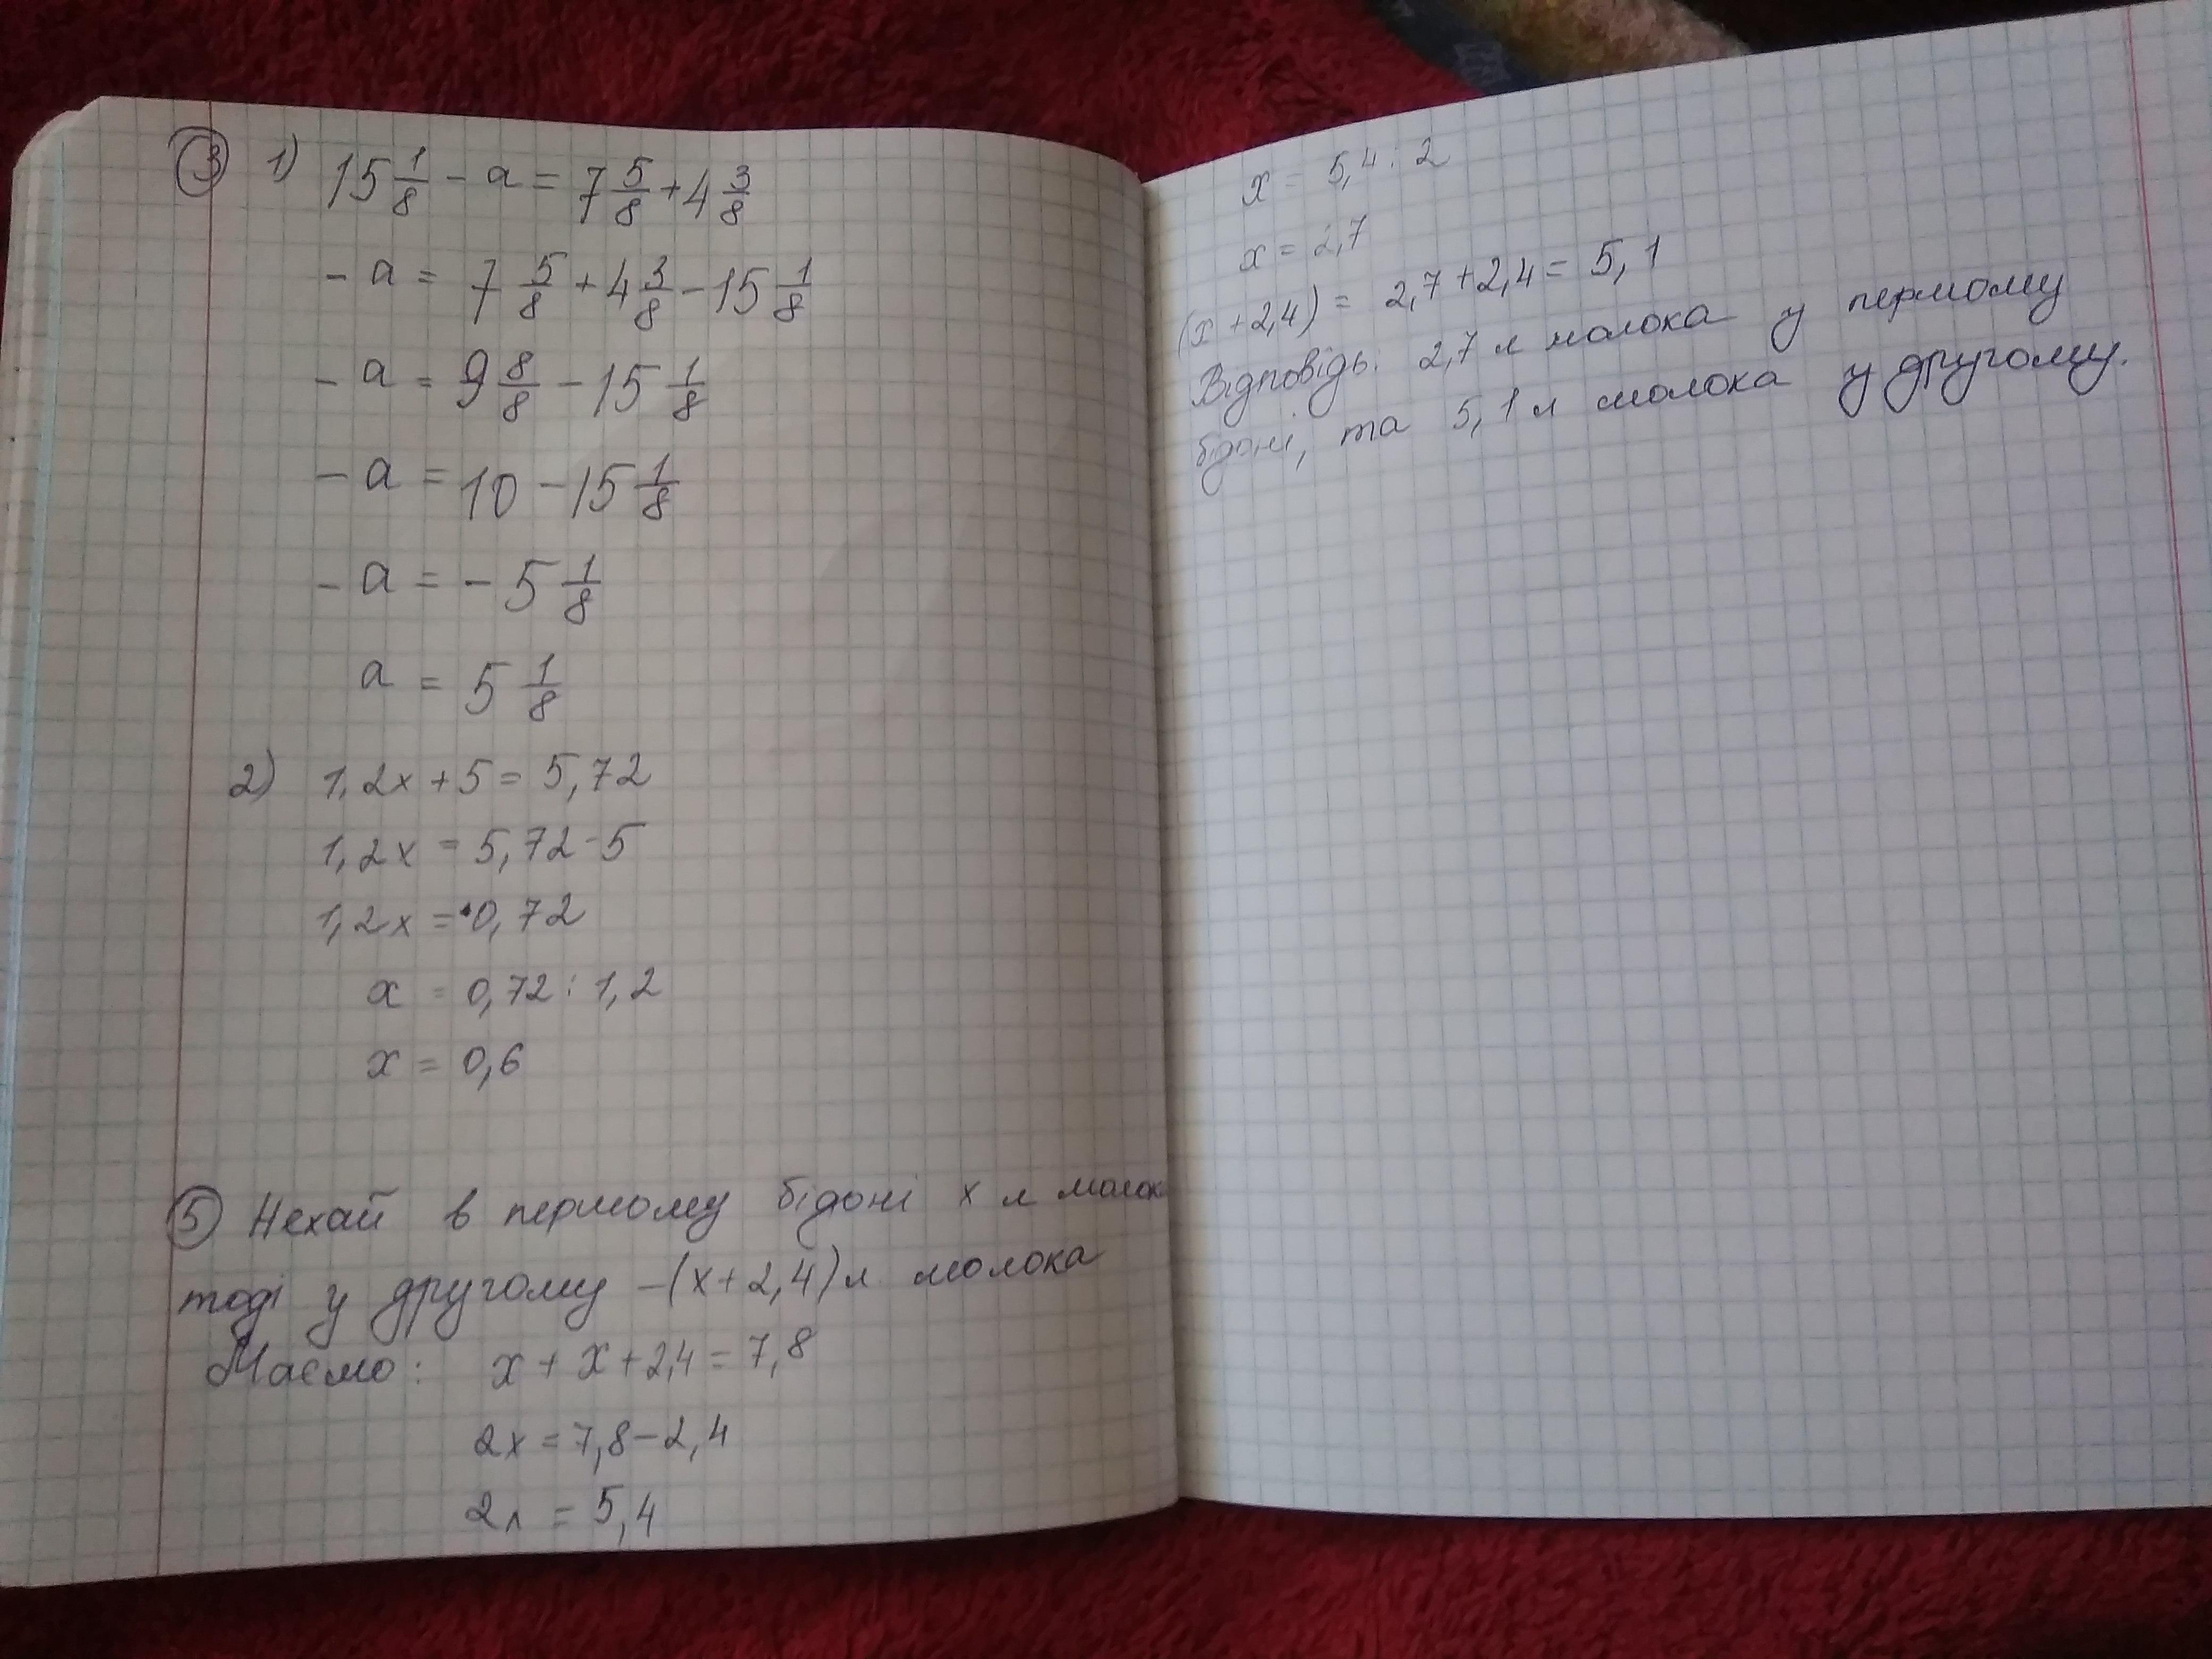 3 1) 15 1/8 - a = 7 5/8 + 4 3/8
- a = 7 5/8 + 4 3/8 - 15 1/8
- a = 9 8/8 - 15 1/8
- a = 10 - 15 1/8
- a = - 5 1/8
a = 5 1/8
2) 1,2x + 5 = 5,72
1,2x = 5,72 - 5
1,2x = 0,72
x = 0,72 : 1,2
x = 0,6
5 Нехай в первому бідоні x л молока
тоді у другому - (x + 2,4) л молока
Маємо: x + x + 2,4 = 7,8
2x = 7,8 - 2,4
2x = 5,4
x = 5,4 : 2
x = 2,7
(x + 2,4) = 2,7 + 2,4 = 5,1
Відповідь: 2,7 л молока у первому
бідоні, та 5,1 л молока у другому.